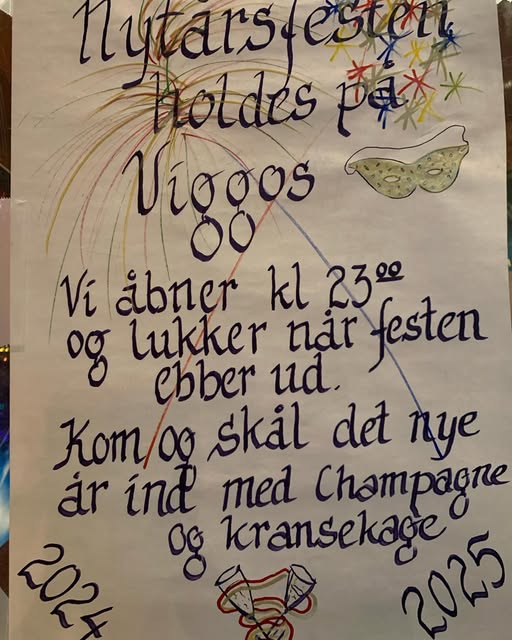 Nytårsfesten
holdes på
Viggos
Vi åbner kl 23⁰⁰
og lukker når festen
ebber ud.
Kom og skål det nye
år ind med Champagne
og kransekage
2024
2025